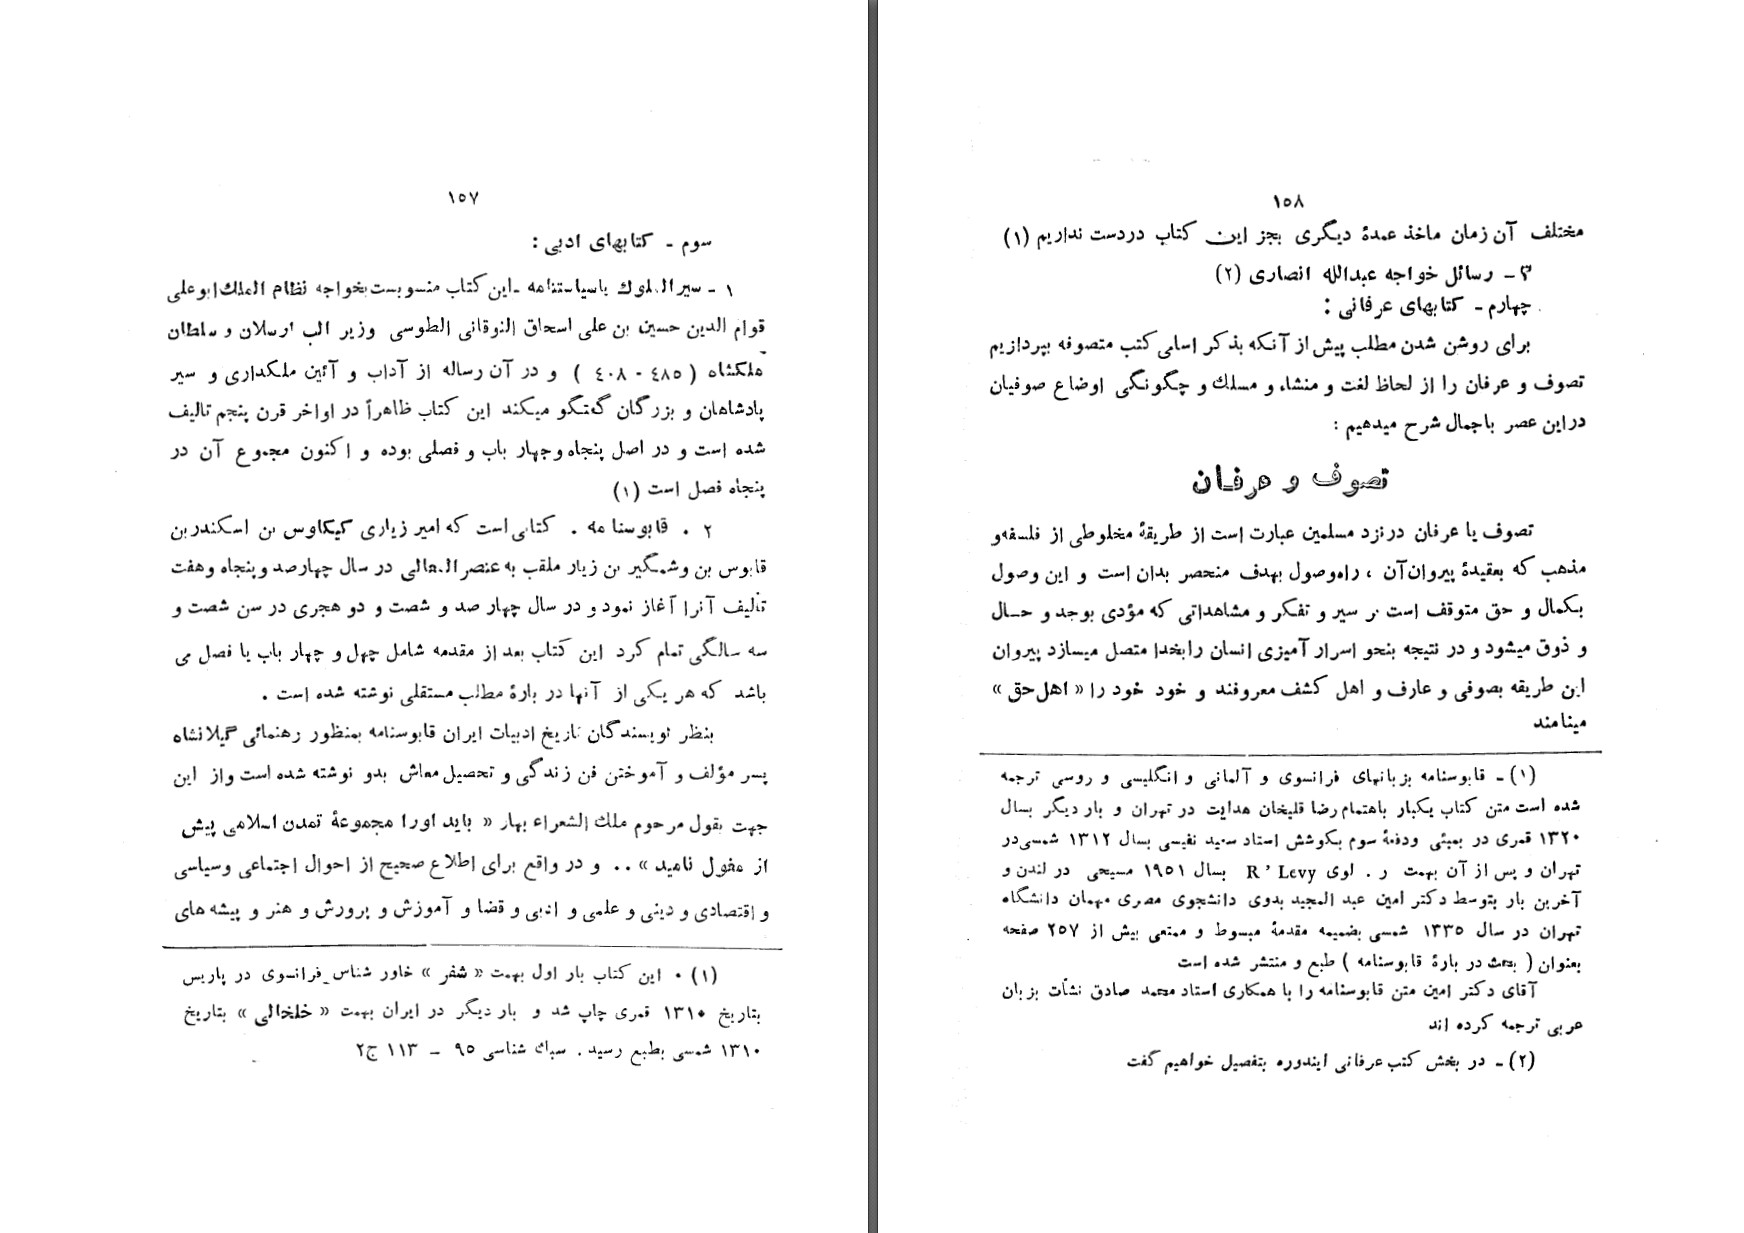 ۱۵۷
سوم - کتابهای ادبی :
۱ - سیرالملوك یاسیاستنامه - این کتاب منسوبست بخواجه نظام الملك ابوعلی
قوام الدین حسین بن علی اسحاق النوقانی الطوسی وزیر الب ارسلان و سلطان
ملکشاه ( ٤٨٥ - ٤٠٨ ) و در آن رساله از آداب و آئین ملکداری و سیر
پادشاهان و بزرگان گفتگو میکند این کتاب ظاهراً در اواخر قرن پنجم تالیف
شده است و در اصل پنجاه وچهار باب و فصلی بوده و اکنون مجموع آن در
پنجاه فصل است (۱)
۲ . قابوسنامه . کتابی است که امیر زیاری کیکاوس بن اسکندربن
قابوس بن وشمگیر بن زیار ملقب به عنصرالمعالی در سال چهارصد وپنجاه وهفت
تألیف آنرا آغاز نمود و در سال چهار صد و شصت و دو هجری در سن شصت و
سه سالگی تمام کرد این کتاب بعد از مقدمه شامل چهل و چهار باب یا فصل می
باشد که هر یکی از آنها در بارهٔ مطلب مستقلی نوشته شده است .
بنظر نویسندگان تاریخ ادبیات ایران قابوسنامه بمنظور رهنمائی گیلانشاه
پسر مؤلف و آموختن فن زندگی و تحصیل معاش بدو نوشته شده است واز این
جهت بقول مرحوم ملك الشعراء بهار « باید اورا مجموعهٔ تمدن اسلامی پیش
از مغول نامید » .. و در واقع برای اطلاع صحیح از احوال اجتماعی وسیاسی
و اقتصادی و دینی و علمی و ادبی و قضا و آموزش و پرورش و هنر و پیشه های
(۱) . این کتاب بار اول بهمت « شفر » خاور شناس فرانسوی در پاریس
بتاریخ ۱۳۱۰ قمری چاپ شد و بار دیگر در ایران بهمت « خلخالی » بتاریخ
۱۳۱۰ شمسی بطبع رسید . سبك شناسی ۹۵ - ۱۱۳ ج۲
۱۵۸
مختلف آن زمان ماخذ عمدهٔ دیگری بجز این کتاب دردست نداریم (۱)
۳ - رسائل خواجه عبدالله انصاری (۲)
چهارم - کتابهای عرفانی :
برای روشن شدن مطلب پیش از آنکه بذکر اسامی کتب متصوفه بپردازیم
تصوف و عرفان را از لحاظ لغت و منشاء و مسلك و چگونگی اوضاع صوفیان
دراین عصر باجمال شرح میدهیم :
تصوف و عرفان
تصوف یا عرفان درنزد مسلمین عبارت است از طریقهٔ مخلوطی از فلسفه و
مذهب که بعقیدهٔ پیروان آن ، راه وصول بهدف منحصر بدان است و این وصول
بکمال و حق متوقف است بر سیر و تفکر و مشاهداتی که مؤدی بوجد و حال
و ذوق میشود و در نتیجه بنحو اسرار آمیزی انسان رابخدا متصل میسازد پیروان
این طریقه بصوفی و عارف و اهل کشف معروفند و خود خود را « اهل حق »
مینامند
(۱) - قابوسنامه بزبانهای فرانسوی و آلمانی و انگلیسی و روسی ترجمه
شده است متن کتاب یکبار باهتمام رضا قلیخان هدایت در تهران و بار دیگر بسال
۱۳۲۰ قمری در بمبئی ودفعهٔ سوم بکوشش استاد سعید نفیسی بسال ۱۳۱۲ شمسی در
تهران و پس از آن بهمت ر . لوی R ' Levy بسال ۱۹۵۱ مسیحی در لندن و
آخرین بار بتوسط دکتر امین عبد المجید بدوی دانشجوی مصری مهمان دانشگاه
تهران در سال ۱۳۳۵ شمسی بضمیمه مقدمهٔ مبسوط و ممتعی بیش از ۲۵۷ صفحه
بعنوان ( بحث در بارهٔ قابوسنامه ) طبع و منتشر شده است
آقای دکتر امین متن قابوسنامه را با همکاری استاد محمد صادق نشأت بزبان
عربی ترجمه کرده اند
(۲) - در بخش کتب عرفانی ایندوره بتفصیل خواهیم گفت